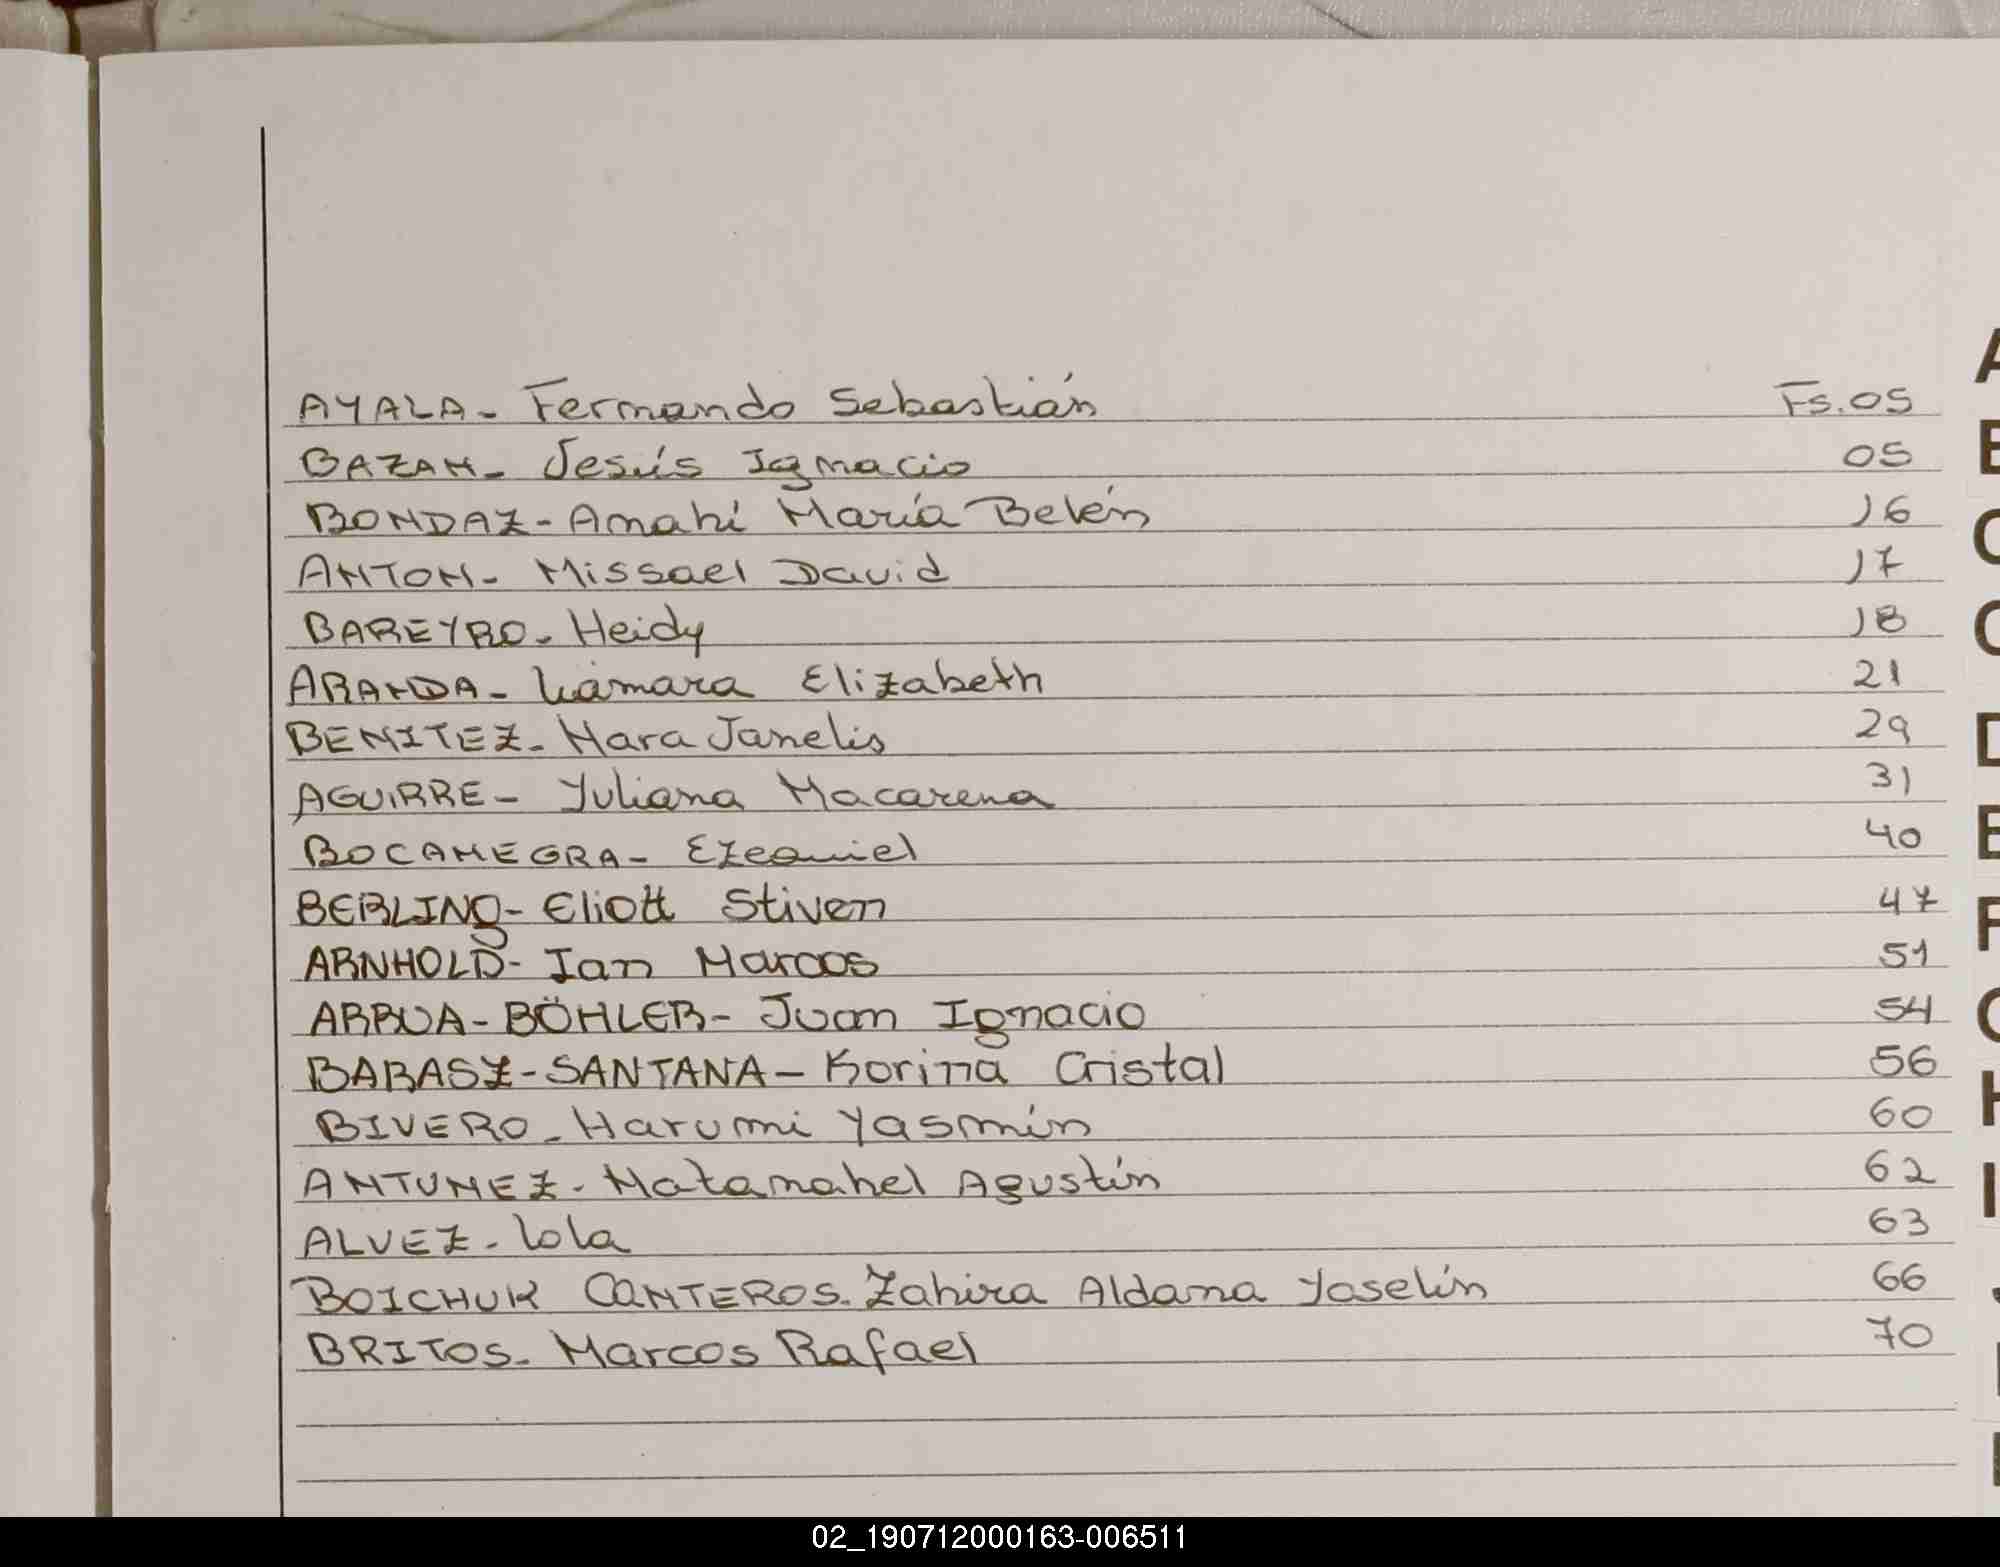 AYALA- Fernando Sebastián Fs. 05
BAZAN- Jesús Ignacio 05
BONDAZ- Anahí María Belén 16
ANTON- Missael David 17
BAREYRO- Heidy 18
ARANDA- Liámara Elizabeth 21
BENITEZ- Nara Janelis 29
AGUIRRE- Yuliana Macarena 31
BOCANEGRA- Ezequiel 40
BERLING- Eliott Stiven 47
ARNHOLD- Ian Marcos 51
ARRUA-BÖHLER- Juan Ignacio 54
BARASZ-SANTANA- Korina Cristal 56
BIVERO- Harumi Yasmín 60
ANTUNEZ- Natanahel Agustín 62
ALVEZ- Lola 63
BOICHUK CANTEROS. Zahira Aldana Yoselín 66
BRITOS- Marcos Rafael 70
A
B
C
D
E
F
H
I
02_190712000163-006511